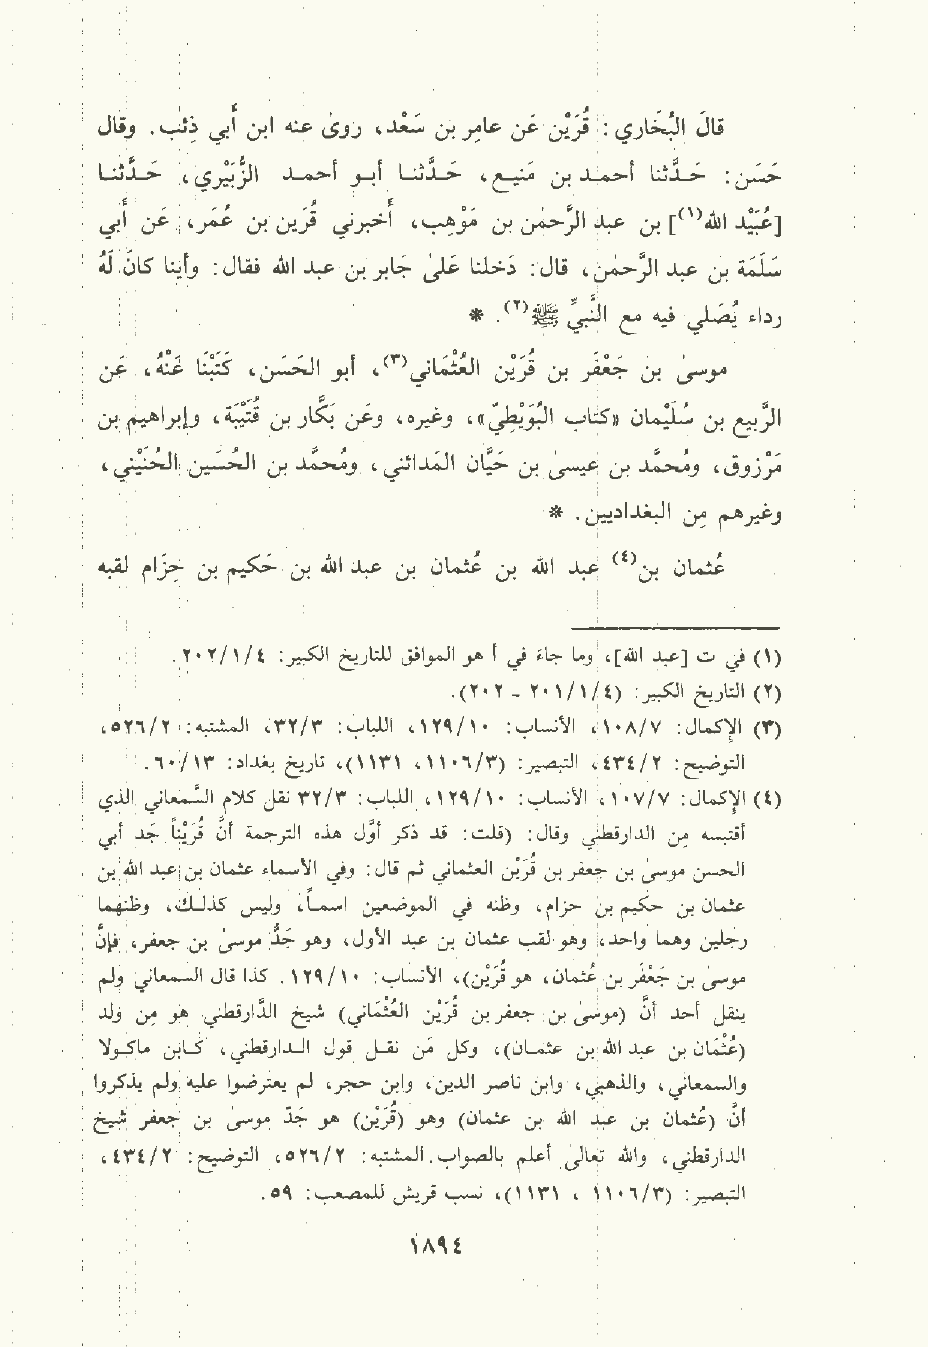 قالَ البُخَاري: قُرَيْن عَن عامِر بن سَعْد، روىٰ عنه ابن أَبي ذِئب. وقال
حَسَن: حَـدَّثنا أحمـد بن مَنيـع، حَـدَّثنـا أبـو أحمـد الزُّبَيْري، حَـدَّثنـا
[عُبَيْد الله(١)] بن عبد الرَّحمٰن بن مَوْهِب، أَخبرني قُرَين بن عُمَر، عَن أَبي
سَلَمَة بن عبد الرَّحمٰن، قال: دَخلنا عَلىٰ جَابر بن عبد الله فقال: وأينا كانَ لَهُ
رداء يُصَلي فيه مع النَّبيِّ ﷺ(٢). *
موسىٰ بن جَعْفَر بن قُرَيْن العُثْمَاني(٣)، أبو الحَسَن، كَتَبْنَا عَنْهُ، عَن
الرَّبيع بن سُلَيْمان «كتاب البُوَيْطِيّ»، وغيره، وعَن بَكَّار بن قُتَيْبَة، وإبراهيم بن
مَرْزوق، ومُحمَّد بن عيسىٰ بن حَيَّان المَدائني، ومُحمَّد بن الحُسين الحُنَيْني،
وغيرهم مِن البغداديين. *
عُثمان بن(٤) عبد الله بن عُثمان بن عبد الله بن حَكيم بن حِزَام لقبه
(١) في ت [عبد الله]، وما جاءَ في أ هو الموافق للتاريخ الكبير: ٢٠٢/١/٤.
(٢) التاريخ الكبير: (٢٠١/١/٤ - ٢٠٢).
(٣) الإكمال: ١٠٨/٧، الأنساب: ١٢٩/١٠، اللباب: ٣٢/٣، المشتبه: ٥٢٦/٢،
التوضيح: ٤٣٤/٢، التبصير: (١١٠٦/٣، ١١٣١)، تاريخ بغداد: ٦٠/١٣.
(٤) الإكمال: ١٠٧/٧، الأنساب: ١٢٩/١٠، اللباب: ٣٢/٣ نقل كلام السَّمعاني الذي
أقتبسه مِن الدارقطني وقال: (قلت: قد ذكر أوَّل هذه الترجمة أنَّ قُرَيْناً جَد أبي
الحسن موسىٰ بن جعفر بن قُرَيْن العثماني ثم قال: وفي الأسماء عثمان بن عبد الله بن
عثمان بن حكيم بن حزام، وظنه في الموضعين اسمـاً، وليس كذلـك، وظنهما
رجلين وهما واحد، وهو لقب عثمان بن عبد الأول، وهو جَدُّ موسىٰ بن جعفر، فإنَّ
موسىٰ بن جَعْفَر بن عُثمان، هو قُرَيْن)، الأنساب: ١٢٩/١٠. كذا قال السمعاني ولم
ينقل أحد أنَّ (موسىٰ بن جعفر بن قُرَيْن العُثْمَاني) شيخ الدَّارقطني هو مِن ولد
(عُثْمَان بن عبد الله بن عثمـان)، وكل مَن نقـل قول الـدارقطني، كـابن ماكـولا
والسمعاني، والذهبي، وابن ناصر الدين، وابن حجر، لم يعترضوا عليه ولم يذكروا
أنَّ (عُثمان بن عبد الله بن عثمان) وهو (قُرَيْن) هو جَدّ موسىٰ بن جعفر شيخ
الدارقطني، والله تعالىٰ أعلم بالصواب. المشتبه: ٥٢٦/٢، التوضيح: ٤٣٤/٢،
التبصير: (١١٠٦/٣ ، ١١٣١)، نسب قريش للمصعب: ٥٩.
١٨٩٤